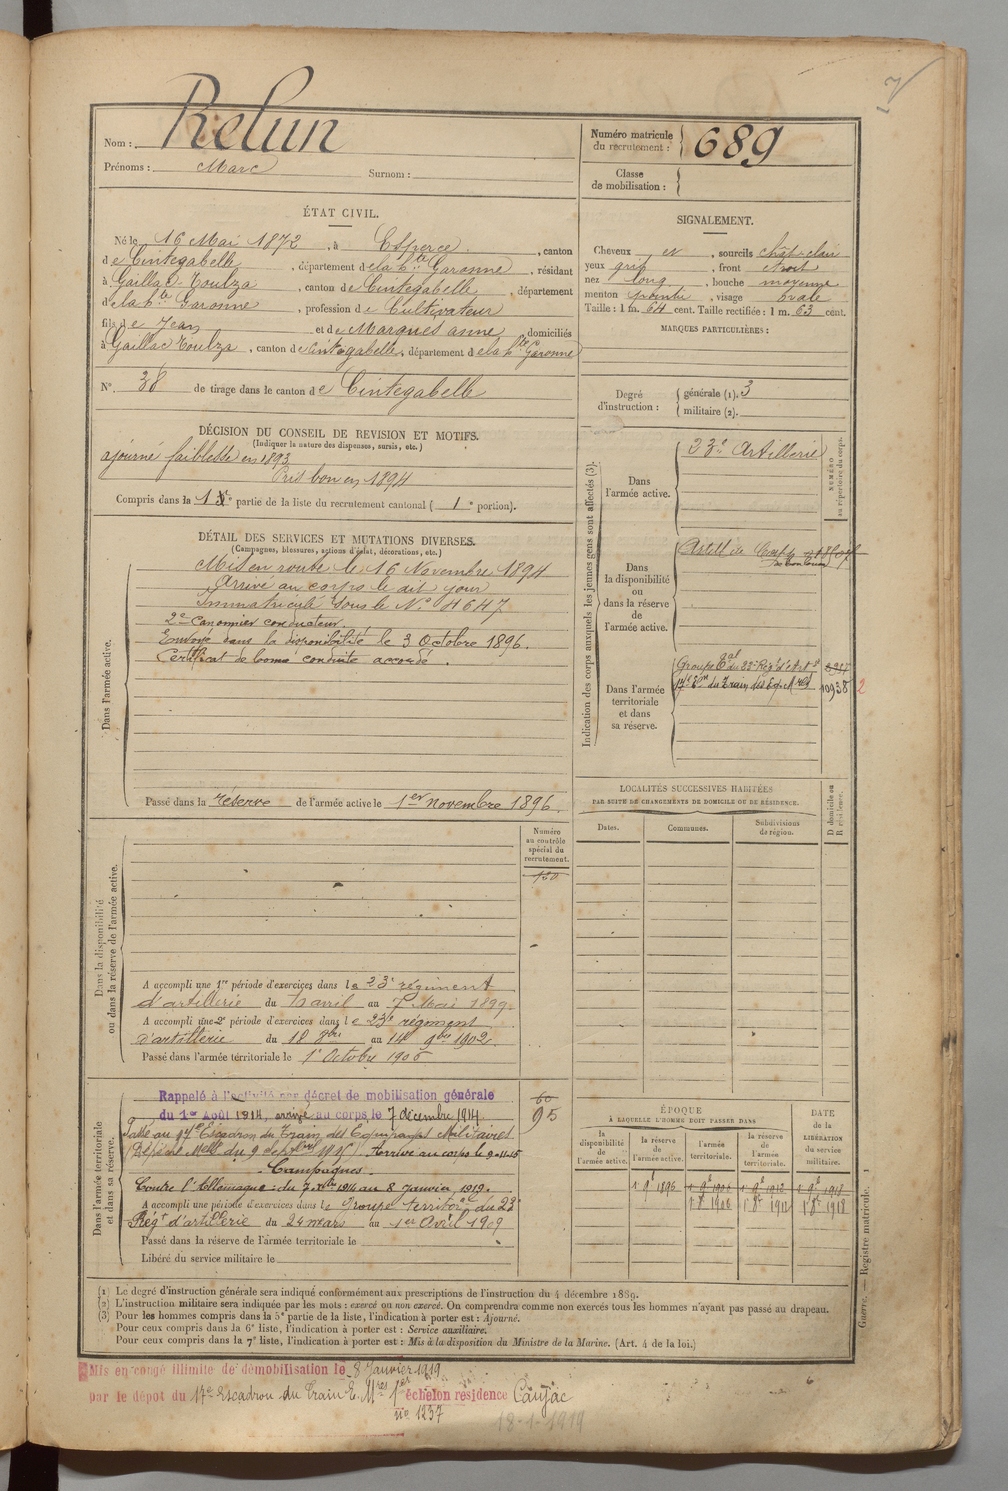 7
Nom : Relun
Prénoms : Marc Surnom :
Numéro matricule du recrutement : 689
Classe de mobilisation :
ÉTAT CIVIL.
Né le 16 Mai 1872, à Esperce, canton
de Cintegabelle, département de la hte Garonne, résidant
à Gaillac-Toulza, canton de Cintegabelle, département
de la hte Garonne, profession de Cultivateur
fils de Jean et de Marques anne, domiciliés
à Gaillac Toulza, canton de Cintegabelle, département de la hte Garonne
N° 38 de tirage dans le canton de Cintegabelle
SIGNALEMENT.
Cheveux et, sourcils chât-clair
yeux gris, front étroit
nez long, bouche moyenne
menton pointu, visage ovale
Taille : 1 m. 64 cent. Taille rectifiée : 1 m. 63 cent.
MARQUES PARTICULIÈRES :
Degré d'instruction : générale (1). 3
militaire (2).
DÉCISION DU CONSEIL DE REVISION ET MOTIFS.
(Indiquer la nature des dispenses, sursis, etc.)
ajourné faiblesse en 1893
Pris bon en 1894
Compris dans la 1re partie de la liste du recrutement cantonal ( 1e portion).
DÉTAIL DES SERVICES ET MUTATIONS DIVERSES.
(Campagnes, blessures, actions d'éclat, décorations, etc.)
Dans l'armée active.
Mis en route le 16 Novembre 1894
Arrivé au corps le dit jour
Immatriculé sous le N° 4647
2e Canonnier conducteur.
Envoyé dans la disponibilité le 3 Octobre 1896.
Certificat de bonne conduite accordé.
Passé dans la réserve de l'armée active le 1er novembre 1896.
Indication des corps auxquels les jeunes gens sont affectés (3).
NUMÉRO au répertoire du corps.
Dans l'armée active.
23e Artillerie
Dans la disponibilité ou dans la réserve de l'armée active.
Artill de Corps
de Toulouse
Dans l'armée territoriale et dans sa réserve.
Groupe tal du 23e Régt d'Art
17e Eon du Train des Eq. Mres 10938 2
LOCALITÉS SUCCESSIVES HABITÉES
PAR SUITE DE CHANGEMENTS DE DOMICILE OU DE RÉSIDENCE.
Dates. Communes. Subdivisions de région.
D domicile ou R résidence.
Numéro au contrôle spécial du recrutement.
Dans la disponibilité ou dans la réserve de l'armée active.
A accompli une 1re période d'exercices dans le 23e régiment
d'artillerie du 10 avril au 7 Mai 1899.
A accompli une 2e période d'exercices dans le 23e régiment
d'artillerie du 18 8bre au 14 9bre 1902.
Passé dans l'armée territoriale le 1er Octobre 1906
Dans l'armée territoriale et dans sa réserve.
60
95
Rappelé à l'activité par décret de mobilisation générale
du 1er Août 1914, arrivé au corps le 7 décembre 1914.
Passé au 17e Escadron du Train des Equipages Militaires
(Dépêche Melle du 9 septbre 1915) Arrivé au corps le 9-11-15
Campagnes
Contre l'Allemagne : du 7 Xbre 1914 au 8 Janvier 1919.
A accompli une période d'exercices dans le Groupe territorial du 23e
Régt d'artillerie du 24 mars au 1er Avril 1909
Passé dans la réserve de l'armée territoriale le
Libéré du service militaire le
ÉPOQUE
À LAQUELLE L'HOMME DOIT PASSER DANS
DATE DE LA LIBÉRATION DU SERVICE MILITAIRE.
la disponibilité de l'armée active. la réserve de l'armée active. l'armée territoriale. la réserve de l'armée territoriale.
1 9e 1896 1 9e 1906 1 9e 1912 1 9e 1918
1 8e 1906 1 8e 1912 1 8e 1918
(1) Le degré d'instruction générale sera indiqué conformément aux prescriptions de l'instruction du 4 décembre 1889.
(2) L'instruction militaire sera indiquée par les mots : exercé ou non exercé. On comprendra comme non exercés tous les hommes n'ayant pas passé au drapeau.
(3) Pour les hommes compris dans la 5e partie de la liste, l'indication à porter est : Ajourné.
Pour ceux compris dans la 6e liste, l'indication à porter est : Service auxiliaire.
Pour ceux compris dans la 7e liste, l'indication à porter est : Mis à la disposition du Ministre de la Marine. (Art. 4 de la loi.)
Guerre. — Registre matricule. 1
Mis en congé illimité de démobilisation le 8 Janvier 1919
par le dépôt du 17e Escadron du Train E. Mres 1er échelon résidence Caujac
n° 1237
18-1-1919